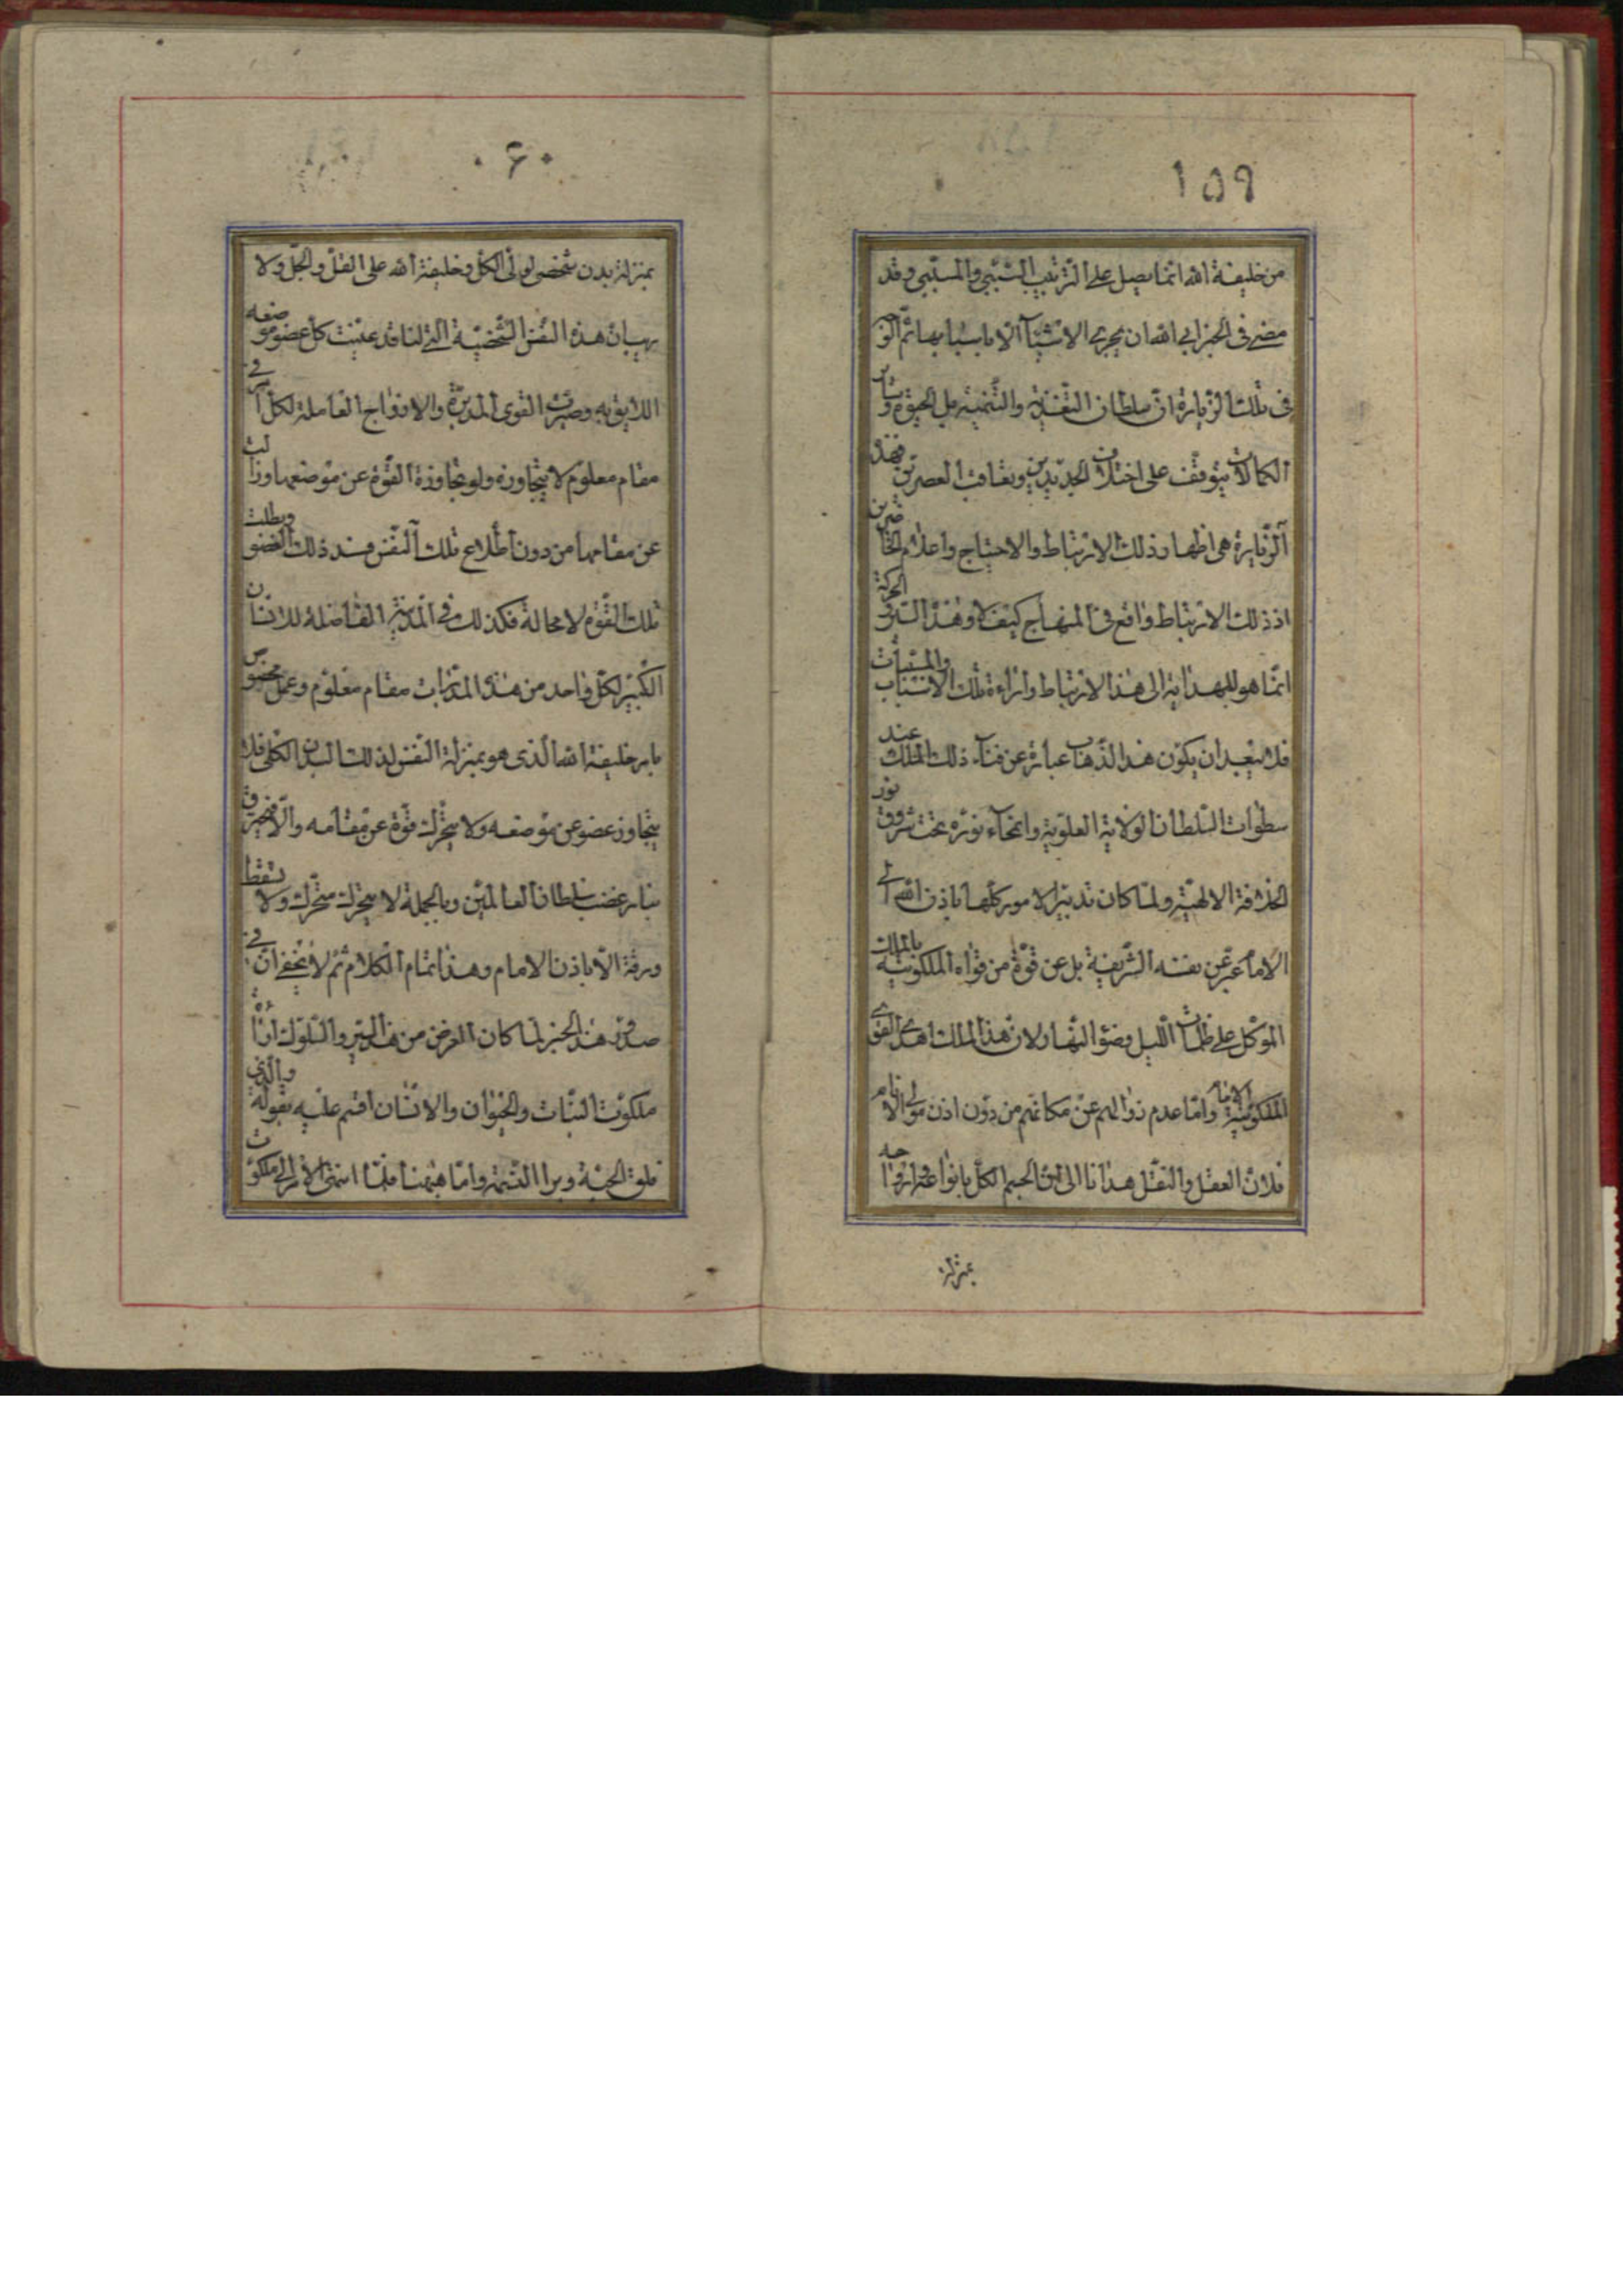 ١٥٩
من خليفة الله انما يصل على الترتيب السببي والمسببي وقد
مضى في الخبر ابى الله ان يجرى الاشيآ الا باسبابها ثم السر
في تلك الزيارة ان سلطان التغذية والتنمية بل الحيوة وسائر
الكمالات يتوقف على اختلاف الجديدين وتعاقب العصرين فهذه
الزيارة هى اظهار ذلك الارتباط والاحتياج واعلام الحاضرين
اذ ذلك الارتباط واقع في المنهاج كيف لا وهذا السر والحركة
انما هو للهداية الى هذا الارتباط واراءة تلك الاسباب والمسببات
فلا يبعد ان يكون هذا الذهاب عبارة عن فنآء ذلك الملك عند
سطوات السلطان الولاية العلوية وانمحآء نوره تحت شروق نور
الخلافة الالهية ولما كان تدبير الامور كلها باذن الله الى
الامام عبر عن نفسه الشريفة بل عن قوة من قواه الملكوتية بالملك
الموكل على ظلمات الليل وضوء النهار ولان هذا الملك احدى القوى
الملكوتية الامام واما عدم زوالهم عن مكانهم من دون اذن مولى الانام
فلان العقل والنقل هدانا الى ان الجسم الكل بانواعه وارواحه
بمنزلة
٠۶٠
بمنزلة بدن شخصى لمولى الكل وخليفة الله على القل والجل ولا
ريب ان هذه النفس الشخصية التي لنا قد عينت كل عضو موضعه
اللايق به وصيرت القوى المدبرة والارواح العاملة لكل في
مقام معلوم لا يتجاوزه ولو تجاوزة القوة عن موضعها وزالت
عن مقامها من دون اطلاع تلك النفس فسد ذلك العضو وبطلت
تلك القوة لا محالة فكذلك في المدينة الفاضلة للانسان
الكبير لكل واحد من هذه المدبرات مقام معلوم وعمل مخصوص
بامر خليفة الله الذى هو بمنزلة النفس لذلك البدن الكلى فلا
يتجاوز عضو عن موضعه ولا يتحرك قوة عن مقامه والا فيحترق
بنار غضب سلطان العالمين وبالجملة لا يتحرك متحرك ولا يسقط
ورقة الا باذن الامام وهذا تمام الكلام ثم لا يخفى ان في
صدر هذا الخبر لما كان الغرض من هذا السير والسلوك اراءة
ملكوت النبات والحيوان والانسان اقسم عليه بقوله والذي
فلق الحبة وبرا النسمة واما هيهنا فلما انتهى الامر الى ملكوت